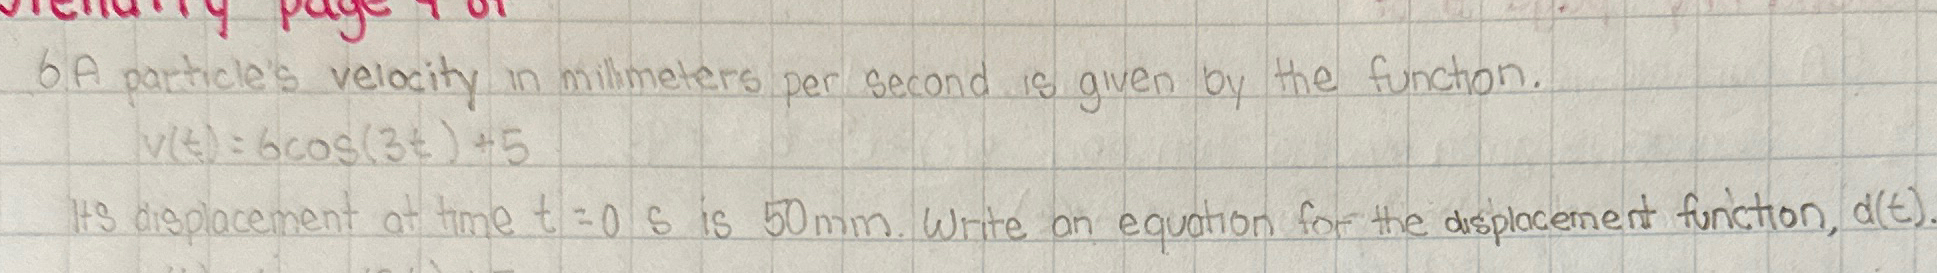 page
6 A particle's velocity in millimeters per second is given by the function.
v(t)=6cos(3t)+5
Its displacement at time t=0 s is 50mm. Write an equation for the displacement function, d(t).